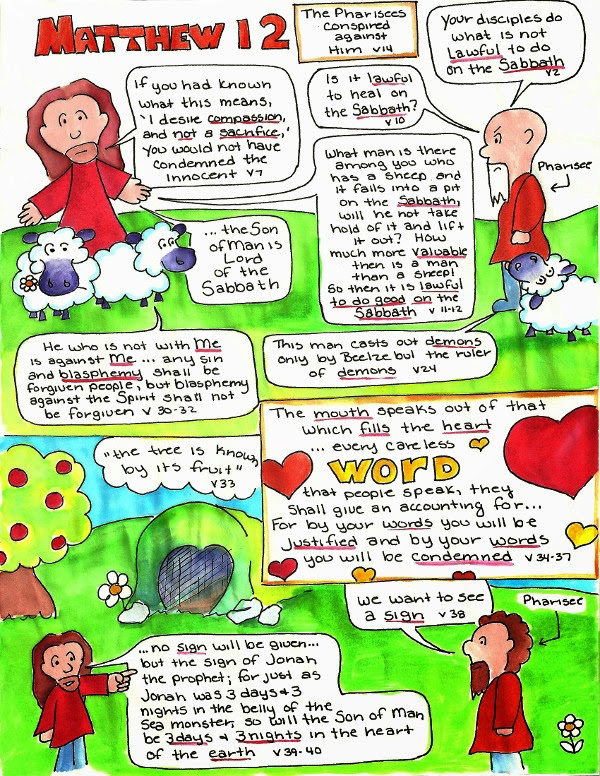 MATTHEW 12
The Pharisees
conspired
against
Him v14
Your disciples do
what is not
Lawful to do
on the Sabbath
v2
If you had known
what this means,
'I desire compassion,
and not a sacrifice,'
you would not have
condemned the
innocent v7
Is it lawful
to heal on
the Sabbath?
v10
Pharisee
What man is there
among you who
has a sheep and
it falls into a pit
on the Sabbath,
will he not take
hold of it and lift
it out? How
much more valuable
then is a man
than a sheep!
So then it is lawful
to do good on the
Sabbath v 11-12
...the Son
of Man is
Lord
of the
Sabbath
He who is not with Me
is against Me ... any sin
and blasphemy shall be
forgiven people, but blasphemy
against the Spirit shall not
be forgiven v 30-32
This man casts out demons
only by Beelzebul the ruler
of demons v24
The mouth speaks out of that
which fills the heart
... every careless
WORD
that people speak, they
shall give an accounting for...
For by your words you will be
justified and by your words
you will be condemned v 34-37
"the tree is known
by its fruit"
v33
we want to see
a sign v38
Pharisee
...no sign will be given...
but the sign of Jonah
the prophet; for just as
Jonah was 3 days + 3
nights in the belly of the
Sea monster, so will the Son of Man
be 3 days + 3 nights in the heart
of the earth v 39-40